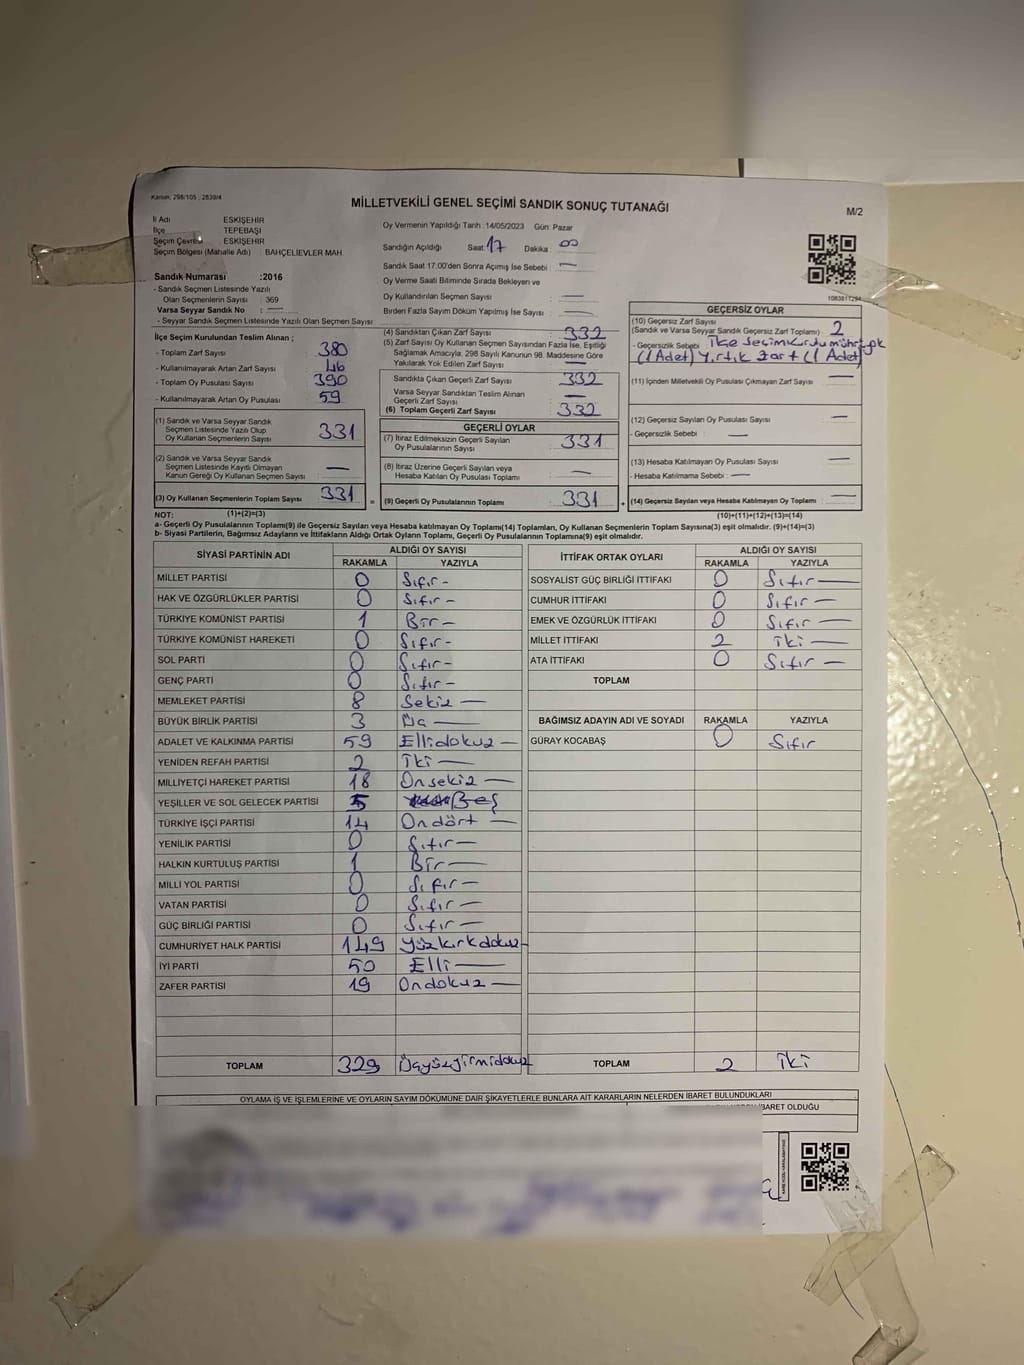 Kanun: 298/105 ; 2839/4
MİLLETVEKİLİ GENEL SEÇİMİ SANDIK SONUÇ TUTANAĞI
M/2
İl Adı ESKİŞEHİR
İlçe TEPEBAŞI
Seçim Çevresi ESKİŞEHİR
Seçim Bölgesi (Mahalle Adı) BAHÇELİEVLER MAH.
Sandık Numarası :2016
- Sandık Seçmen Listesinde Yazılı
Olan Seçmenlerin Sayısı : 369
Varsa Seyyar Sandık No : —
- Seyyar Sandık Seçmen Listesinde Yazılı Olan Seçmen Sayısı
Oy Vermenin Yapıldığı Tarih :14/05/2023 Gün: Pazar
Sandığın Açıldığı Saat: 17 Dakika : 00
Sandık Saat 17.00'den Sonra Açılmış İse Sebebi : —
Oy Verme Saati Bitiminde Sırada Bekleyen ve
Oy Kullandırılan Seçmen Sayısı : —
Birden Fazla Sayım Döküm Yapılmış İse Sayısı : —
1083811294
İlçe Seçim Kurulundan Teslim Alınan ;
- Toplam Zarf Sayısı : 380
- Kullanılmayarak Artan Zarf Sayısı : 46
- Toplam Oy Pusulası Sayısı : 390
- Kullanılmayarak Artan Oy Pusulası : 59
(1) Sandık ve Varsa Seyyar Sandık
Seçmen Listesinde Yazılı Olup
Oy Kullanan Seçmenlerin Sayısı 331
(2) Sandık ve Varsa Seyyar Sandık
Seçmen Listesinde Kayıtlı Olmayan
Kanun Gereği Oy Kullanan Seçmen Sayısı —
(3) Oy Kullanan Seçmenlerin Toplam Sayısı 331
(4) Sandıktan Çıkan Zarf Sayısı : 332
(5) Zarf Sayısı Oy Kullanan Seçmen Sayısından Fazla İse, Eşitliği
Sağlamak Amacıyla; 298 Sayılı Kanunun 98. Maddesine Göre
Yakılarak Yok Edilen Zarf Sayısı : —
Sandıkta Çıkan Geçerli Zarf Sayısı : 332
Varsa Seyyar Sandıktan Teslim Alınan
Geçerli Zarf Sayısı : —
(6) Toplam Geçerli Zarf Sayısı : 332
GEÇERLİ OYLAR
(7) İtiraz Edilmeksizin Geçerli Sayılan
Oy Pusulalarının Sayısı : 331
(8) İtiraz Üzerine Geçerli Sayılan veya
Hesaba Katılan Oy Pusulası Toplamı : —
= (9) Geçerli Oy Pusulalarının Toplamı : 331
GEÇERSİZ OYLAR
(10) Geçersiz Zarf Sayısı
(Sandık ve Varsa Seyyar Sandık Geçersiz Zarf Toplamı) 2
- Geçersizlik Sebebi : İlçe Seçim Kurulu mührü yok
(1 Adet) Yırtık Zarf (1 Adet)
(11) İçinden Milletvekili Oy Pusulası Çıkmayan Zarf Sayısı : —
(12) Geçersiz Sayılan Oy Pusulası Sayısı : —
- Geçersizlik Sebebi : —
(13) Hesaba Katılmayan Oy Pusulası Sayısı : —
- Hesaba Katılmama Sebebi : —
+ (14) Geçersiz Sayılan veya Hesaba Katılmayan Oy Toplamı : —
NOT: (1)+(2)=(3) (10)+(11)+(12)+(13)=(14)
a- Geçerli Oy Pusulalarının Toplamı(9) ile Geçersiz Sayılan veya Hesaba katılmayan Oy Toplamı(14) Toplamları, Oy Kullanan Seçmenlerin Toplam Sayısına(3) eşit olmalıdır. (9)+(14)=(3)
b- Siyasi Partilerin, Bağımsız Adayların ve İttifakların Aldığı Ortak Oyların Toplamı, Geçerli Oy Pusulalarının Toplamına(9) eşit olmalıdır.
SİYASİ PARTİNİN ADI ALDIĞI OY SAYISI
RAKAMLA YAZIYLA
MİLLET PARTİSİ 0 Sıfır -
HAK VE ÖZGÜRLÜKLER PARTİSİ 0 Sıfır -
TÜRKİYE KOMÜNİST PARTİSİ 1 Bir -
TÜRKİYE KOMÜNİST HAREKETİ 0 Sıfır -
SOL PARTİ 0 Sıfır -
GENÇ PARTİ 0 Sıfır -
MEMLEKET PARTİSİ 8 Sekiz —
BÜYÜK BİRLİK PARTİSİ 3 Üç —
ADALET VE KALKINMA PARTİSİ 59 Ellidokuz —
YENİDEN REFAH PARTİSİ 2 İki —
MİLLİYETÇİ HAREKET PARTİSİ 18 Onsekiz —
YEŞİLLER VE SOL GELECEK PARTİSİ 5 Beş
TÜRKİYE İŞÇİ PARTİSİ 14 Ondört —
YENİLİK PARTİSİ 0 Sıfır —
HALKIN KURTULUŞ PARTİSİ 1 Bir —
MİLLİ YOL PARTİSİ 0 Sıfır —
VATAN PARTİSİ 0 Sıfır —
GÜÇ BİRLİĞİ PARTİSİ 0 Sıfır —
CUMHURİYET HALK PARTİSİ 149 Yüzkırkdokuz -
İYİ PARTİ 50 Elli —
ZAFER PARTİSİ 19 Ondokuz —
TOPLAM 329 Üçyüzyirmidokuz
İTTİFAK ORTAK OYLARI ALDIĞI OY SAYISI
RAKAMLA YAZIYLA
SOSYALİST GÜÇ BİRLİĞİ İTTİFAKI 0 Sıfır —
CUMHUR İTTİFAKI 0 Sıfır —
EMEK VE ÖZGÜRLÜK İTTİFAKI 0 Sıfır —
MİLLET İTTİFAKI 2 İki —
ATA İTTİFAKI 0 Sıfır —
TOPLAM
BAĞIMSIZ ADAYIN ADI VE SOYADI RAKAMLA YAZIYLA
GÜRAY KOCABAŞ 0 Sıfır
TOPLAM 2 İki
OYLAMA İŞ VE İŞLEMLERİNE VE OYLARIN SAYIM DÖKÜMÜNE DAİR ŞİKAYETLERLE BUNLARA AİT KARARLARIN NELERDEN İBARET BULUNDUKLARI
İBARET OLDUĞU